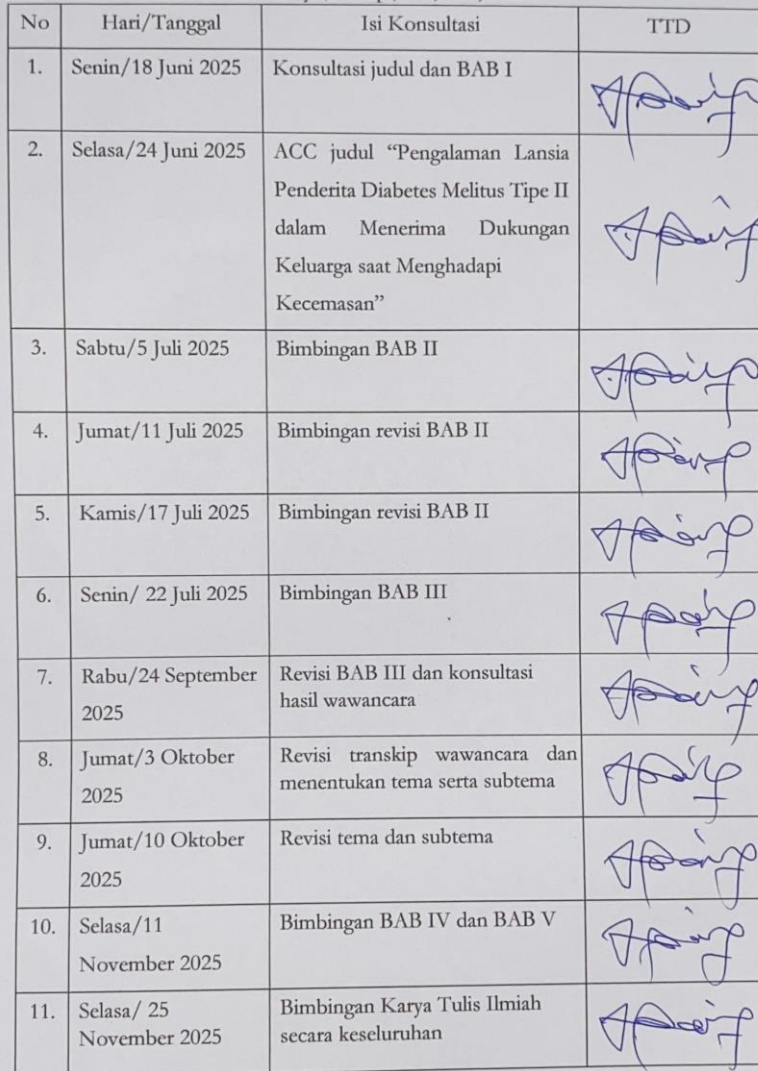 No Hari/Tanggal Isi Konsultasi TTD
1. Senin/18 Juni 2025 Konsultasi judul dan BAB I
2. Selasa/24 Juni 2025 ACC judul “Pengalaman Lansia
Penderita Diabetes Melitus Tipe II
dalam Menerima Dukungan
Keluarga saat Menghadapi
Kecemasan”
3. Sabtu/5 Juli 2025 Bimbingan BAB II
4. Jumat/11 Juli 2025 Bimbingan revisi BAB II
5. Kamis/17 Juli 2025 Bimbingan revisi BAB II
6. Senin/ 22 Juli 2025 Bimbingan BAB III
7. Rabu/24 September Revisi BAB III dan konsultasi
2025 hasil wawancara
8. Jumat/3 Oktober Revisi transkip wawancara dan
2025 menentukan tema serta subtema
9. Jumat/10 Oktober Revisi tema dan subtema
2025
10. Selasa/11 Bimbingan BAB IV dan BAB V
November 2025
11. Selasa/ 25 Bimbingan Karya Tulis Ilmiah
November 2025 secara keseluruhan